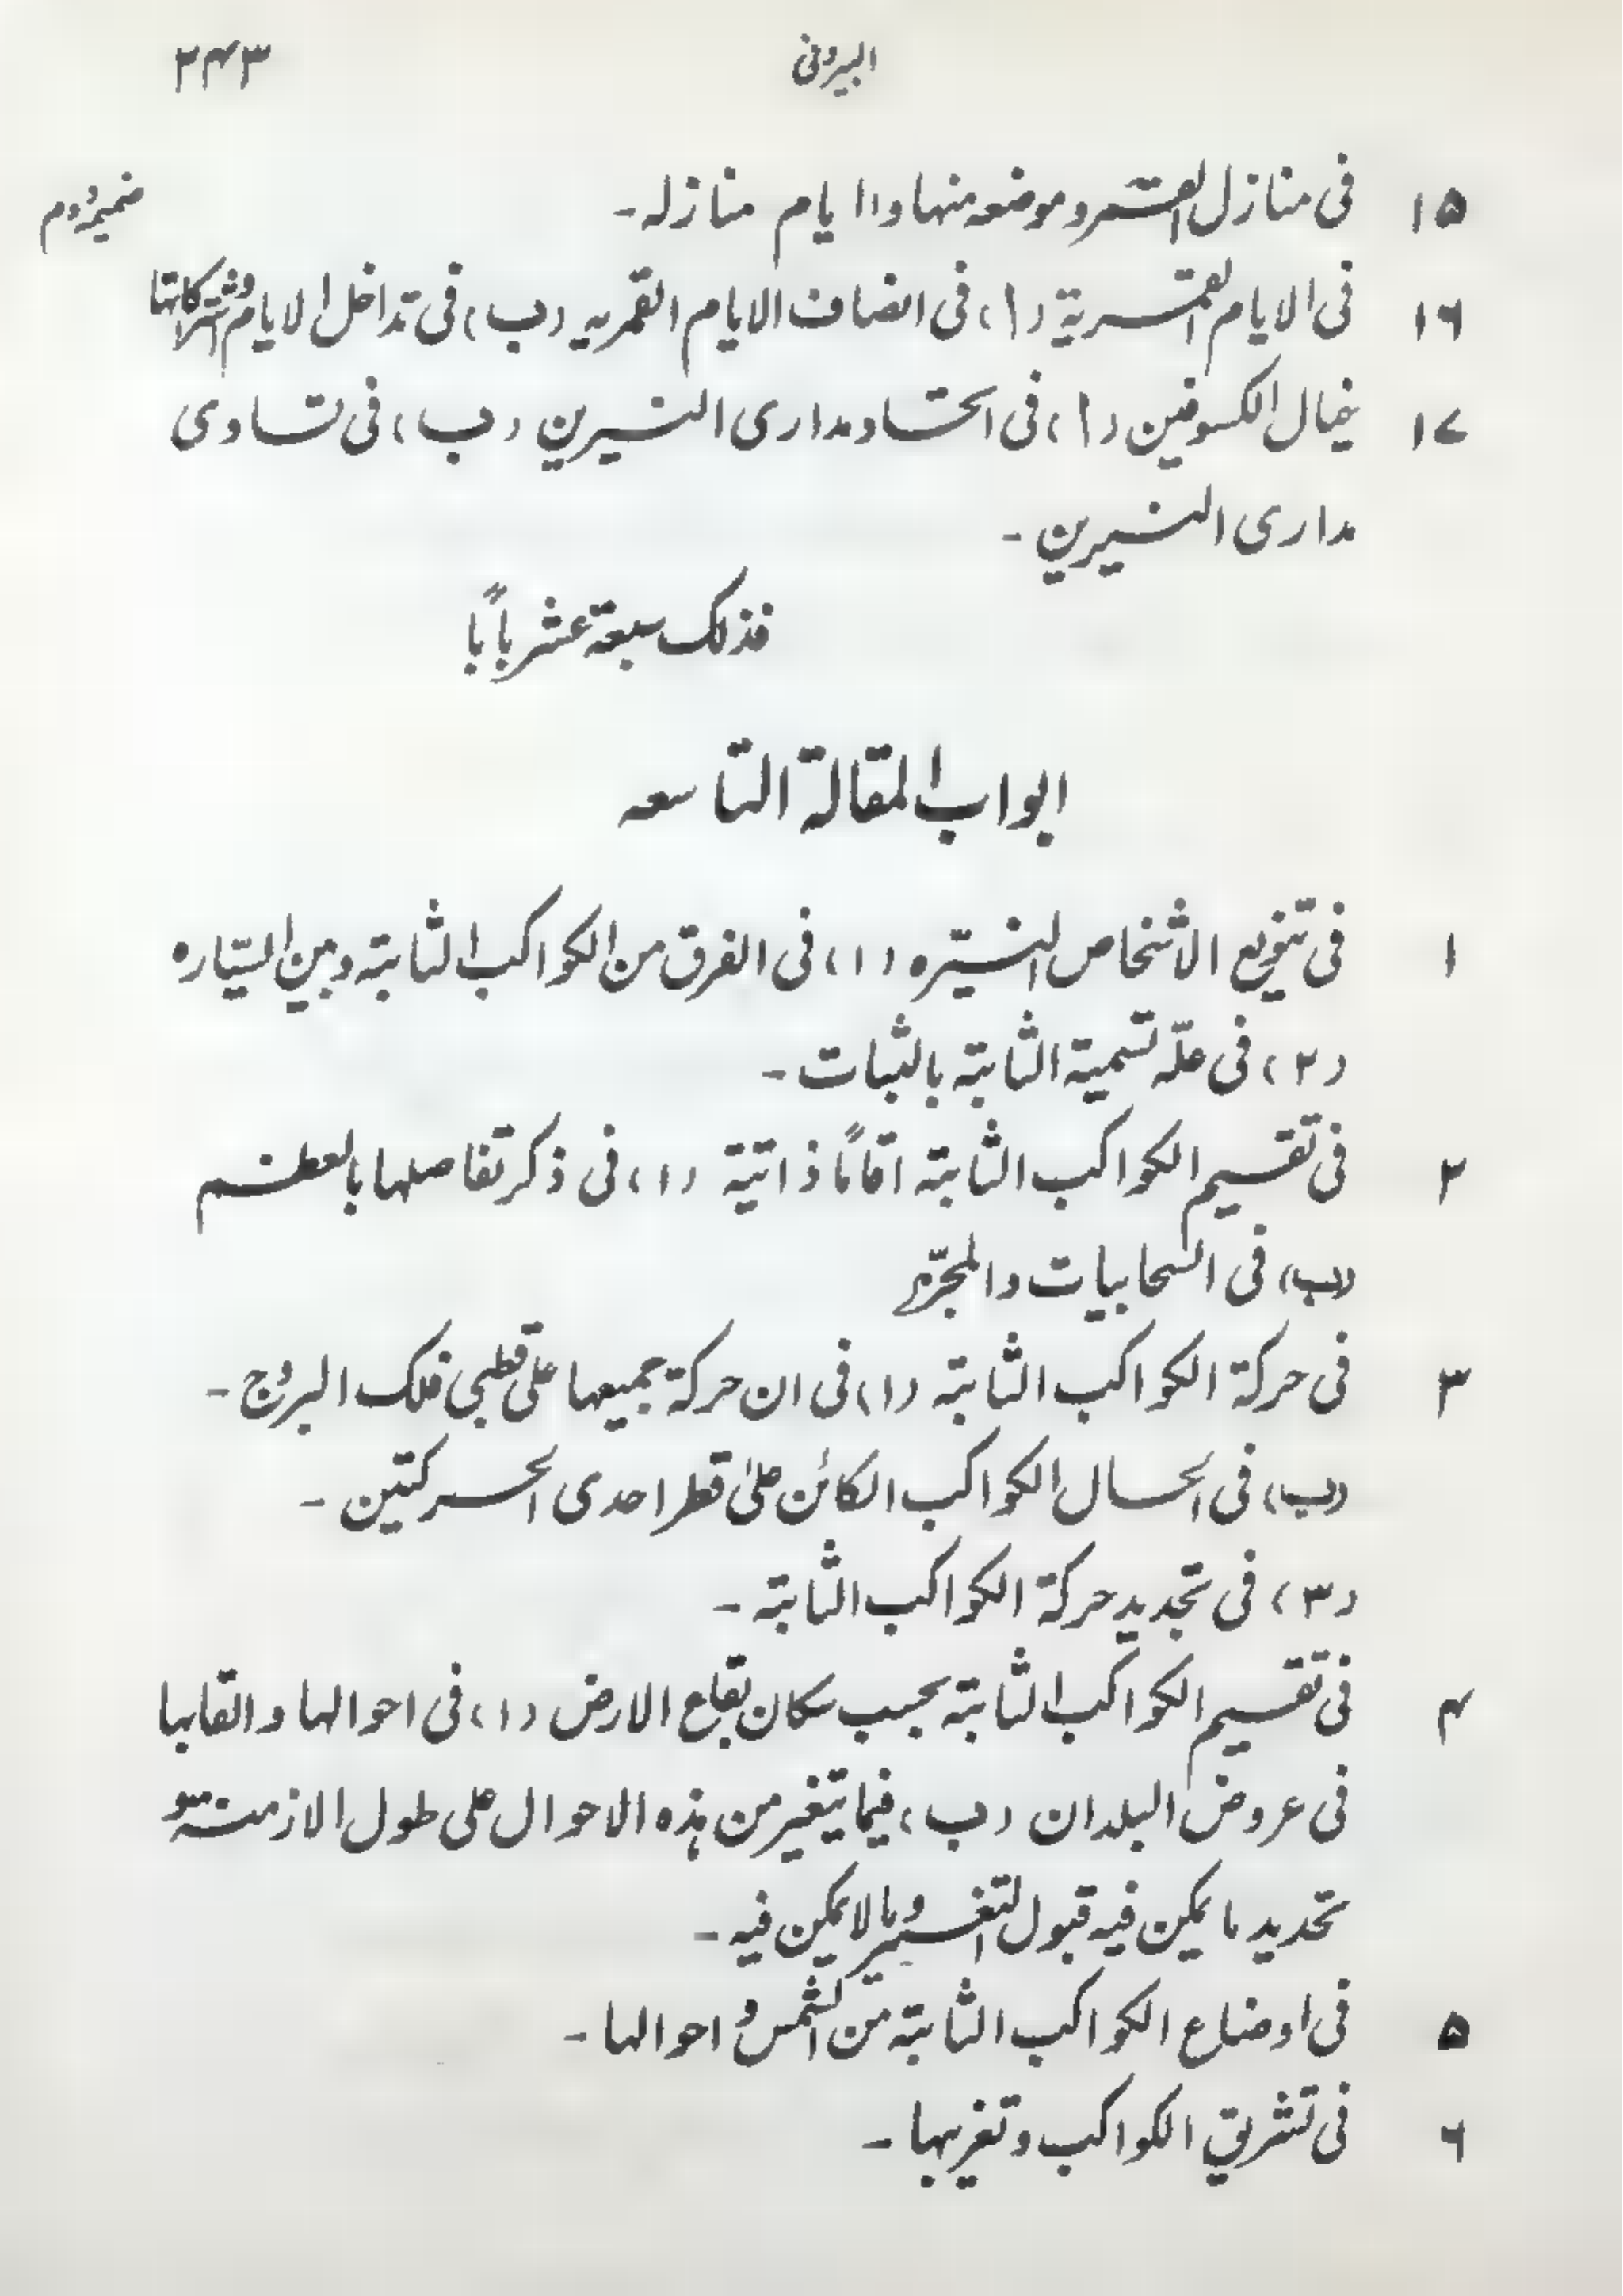 البیرونی ۲۴۳
ضمیمہ دوم
۱۵ فی منازل القمر وموضعہ منہا واا یام منازلہ۔
۱۶ فی الایام القمریۃ (ا) فی انصاف الایام القمریہ (ب) فی تداخل الایام واشتراکاتہا
۱۷ الکسوفین (ا) فی اتحاد مداری النیرین (ب) فی تساوی
مداری النیرین۔
فذلک سبعۃ عشر باباً
ابواب المقالۃ التاسعہ
۱ فی تنویع الاشخاص النیّرہ (۱) فی الفرق من الکواکب الثابتۃ وبین السیّارہ
(۲) فی علّہ تسمیۃ الثابتۃ بالثبات۔
۲ فی تقسیم الکواکب الثابتہ اقاماً ذاتیۃ (۱) فی ذکر تفاصلہا بالعظم
(ب) فی السحابیات والمجرّہ
۳ فی حرکۃ الکواکب الثابتہ (۱) فی ان حرکۃ جمیعہا علی قطبی فلک البروج۔
(ب) فی الحال الکواکب الکائن علیٰ قطر احدی الحرکتین۔
(۳) فی تجدید حرکۃ الکواکب الثابتۃ۔
۴ فی تقسیم الکواکب الثابتۃ بحسب سکان بقاع الارض (۱) فی احوالہا والقابہا
فی عروض البلدان (ب) فیما یتغیر من ہذہ الاحوال علی طول الازمنۃ
تحدید ما یمکن فیہ قبول التغییر وما لا یمکن فیہ۔
۵ فی اوضاع الکواکب الثابتۃ من الشمس و احوالہا۔
۶ فی تشریق الکواکب وتغریبہا۔